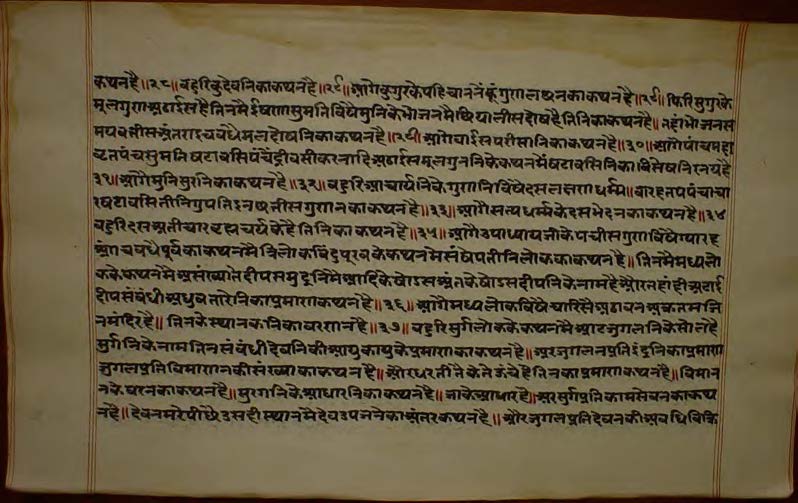 कथन है॥२८॥ बहुरि कुदेवनिका कथन है॥२९॥ आगै कुगुरके पहिचाननें कूं गुरा लछनका कथन है॥२९॥ फिरि सुगुरके
मूलगुरा अठाईस है तिनमै ईषरासुमति विषै मुनिके भोजनमै छियालीस दोष है तिनिका कथन है॥ तहां भोजनस
मय बत्तीस अंतराइ चवधै मल दोषनिका कथन है॥२९॥ आगै बाईस परीसानिका कथन है॥३०॥ आगै पांच महा
ब्रत पंच सुमति षटावसि पंचेंद्री वसी करनादि अठाईस मूलगुननिके कथनमै षटावसिनिका विसेष निरनय है
३१॥ आगै मुनि मुरनिका कथन है॥३२॥ बहुरि आचार्यनिके गुरानि विषै दस लक्षरा धर्म्म॥ बारह तप पंचाचा
र षटावसि तीनि गुपति इन छतीस गुरानका कथन है॥३३॥ आगै सत्य धर्म्मके दस भेदनका कथन है॥३४
बहुरि दस अतीचार ब्रह्मचर्यके है तिनिका कथन है॥३५॥ आगै उपाध्यायजीके पचीस गुरा विषै ग्यारह
अंग चवधै पूर्वका कथनमै त्रिलोकबिंदु पूरवके कथनमै संषेप तीनि लोकका कथन है॥ तिनमै मध्यलो
कके कथनमै असंख्याते दीप समुद्रनिमै आदिके षोडस अंतके षोडस दीपनिके नाम है और तहांही अटाई
दीप संबंधी अधुव तारेनिका प्रमारा कथन है॥३६॥ आगै मध्यलोक विषै चारिसै अठावन अक्रतम जि
नमंदिर है॥ तिनके स्थानकनिका वररान है॥३७॥ बहुरि सुर्गलोकके कथनमै आठ जुगलनिके सोलहे
सुर्गनिके नाम तिन संबंधी देवनिकी आयु कायुके प्रमाराका कथन है॥ अर जुगलनप्रति इंदुनिका प्रमारा
जुगल प्रति विमाराानकी संख्याका कथन है॥ और धरतीतै केते ऊंचे है तिनका प्रमारा कथन है॥ विमान
नके वरनका कथन है॥ सुरगनिके आधारनिका कथन है॥ जाके आधार है॥ अर सुर्गप्रति काम सेवनका कथ
न है॥ देवन मरे पीछै उसही स्थानमै देव उपजनेका अंतर कथन है॥ और जुगल प्रति देवनकी अवधि विक्रि